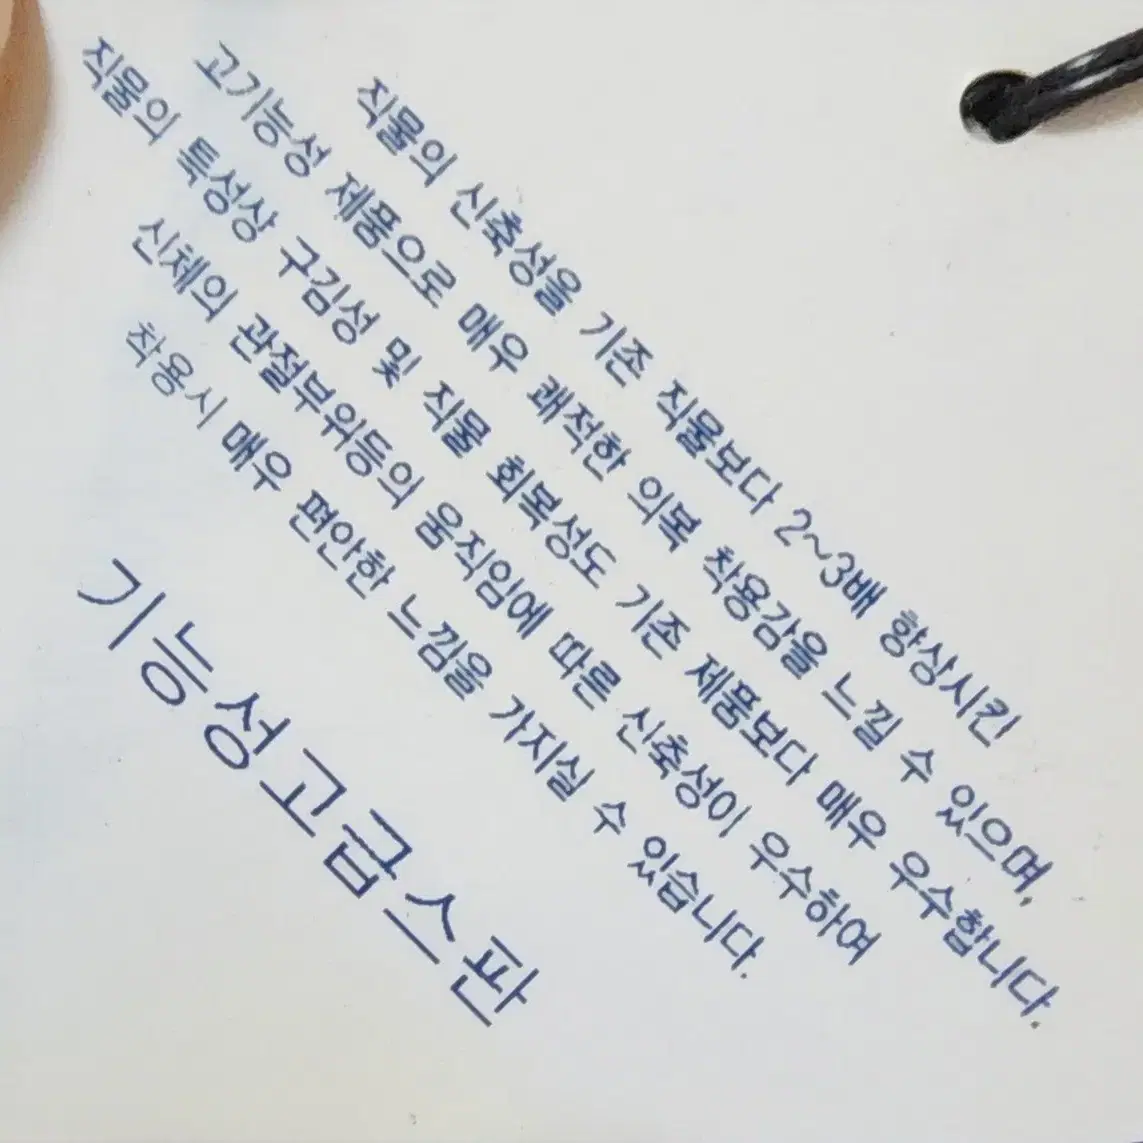 직물의 신축성을 기존 직물보다 2~3배 향상시킨
고기능성 제품으로 매우 쾌적한 의복 착용감을 느낄 수 있으며,
직물의 특성상 구김성 및 직물 회복성도 기존 제품보다 매우 우수합니다.
신체의 관절부위등의 움직임에 따른 신축성이 우수하여
착용시 매우 편안한 느낌을 가지실 수 있습니다.
기능성고급스판